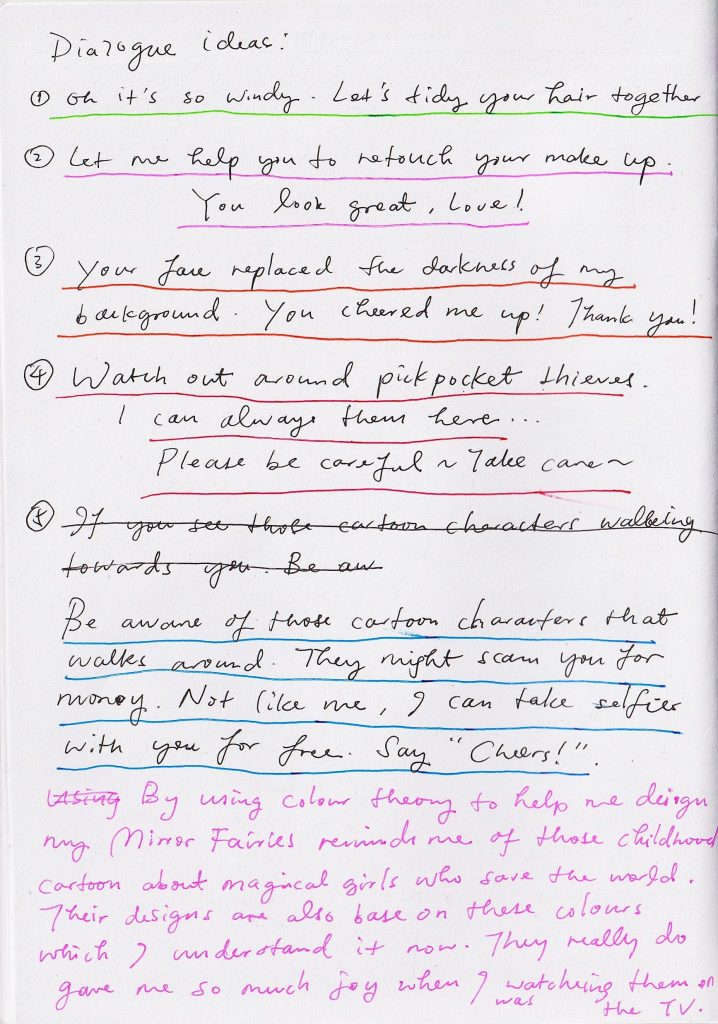 Dialogue ideas:
① Oh it's so windy. Let's tidy your hair together
② Let me help you to retouch your make up.
You look great, Love!
③ Your face replaced the darkness of my
background. You cheered me up! Thank you!
④ Watch out around pickpocket thieves.
I can always them here...
Please be careful ~ Take care ~
⑤ If you see those cartoon characters walking
towards you. Be aw
Be aware of those cartoon characters that
walks around. They might scam you for
money. Not like me, I can take selfies
with you for free. Say "Cheers!".
Using By using colour theory to help me design
my Mirror Fairies reminds me of those childhood
cartoon about magical girls who save the world.
Their designs are also base on these colours
which I understand it now. They really do
gave me so much joy when I was watching them on
the TV.